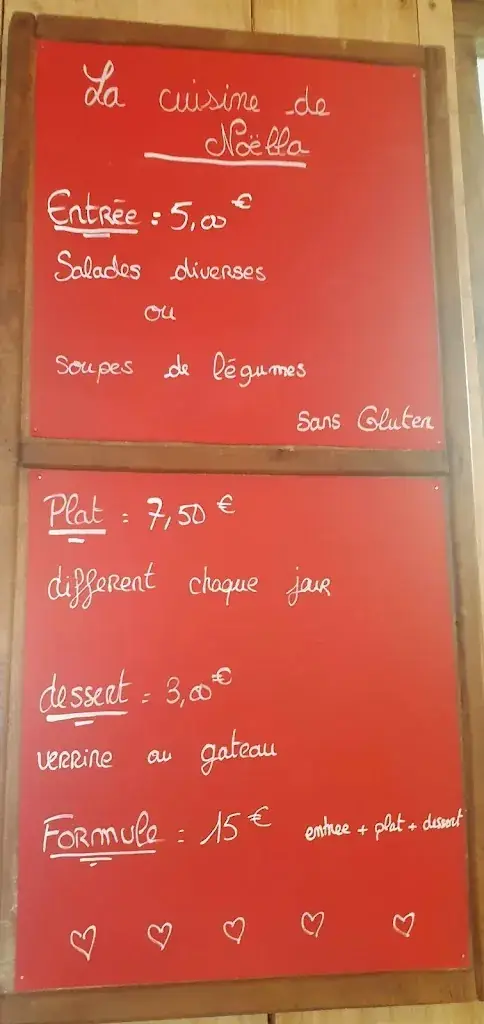 La cuisine de
Noëlla
Entrée : 5,00 €
Salades diverses
ou
soupes de légumes
Sans Gluten
Plat = 7,50 €
différent chaque jour
dessert = 3,00 €
verrine ou gateau
Formule = 15 € entree + plat + dessert